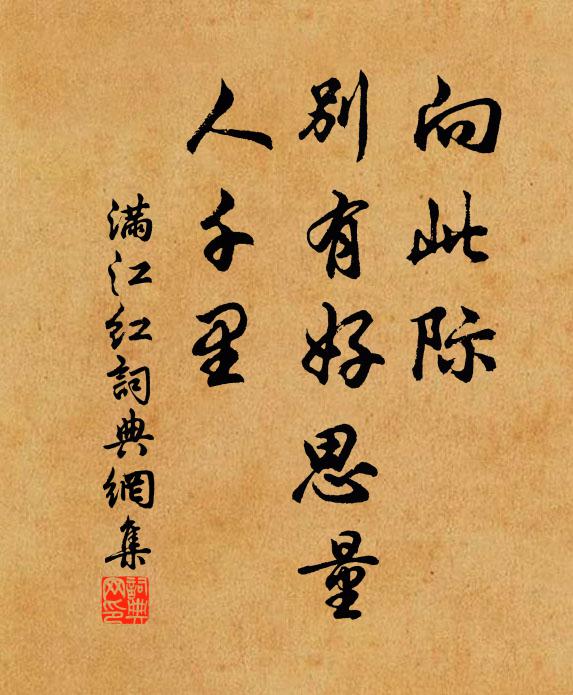 向此际
别有好思量
人千里
满江红詞典網集
詞典网印